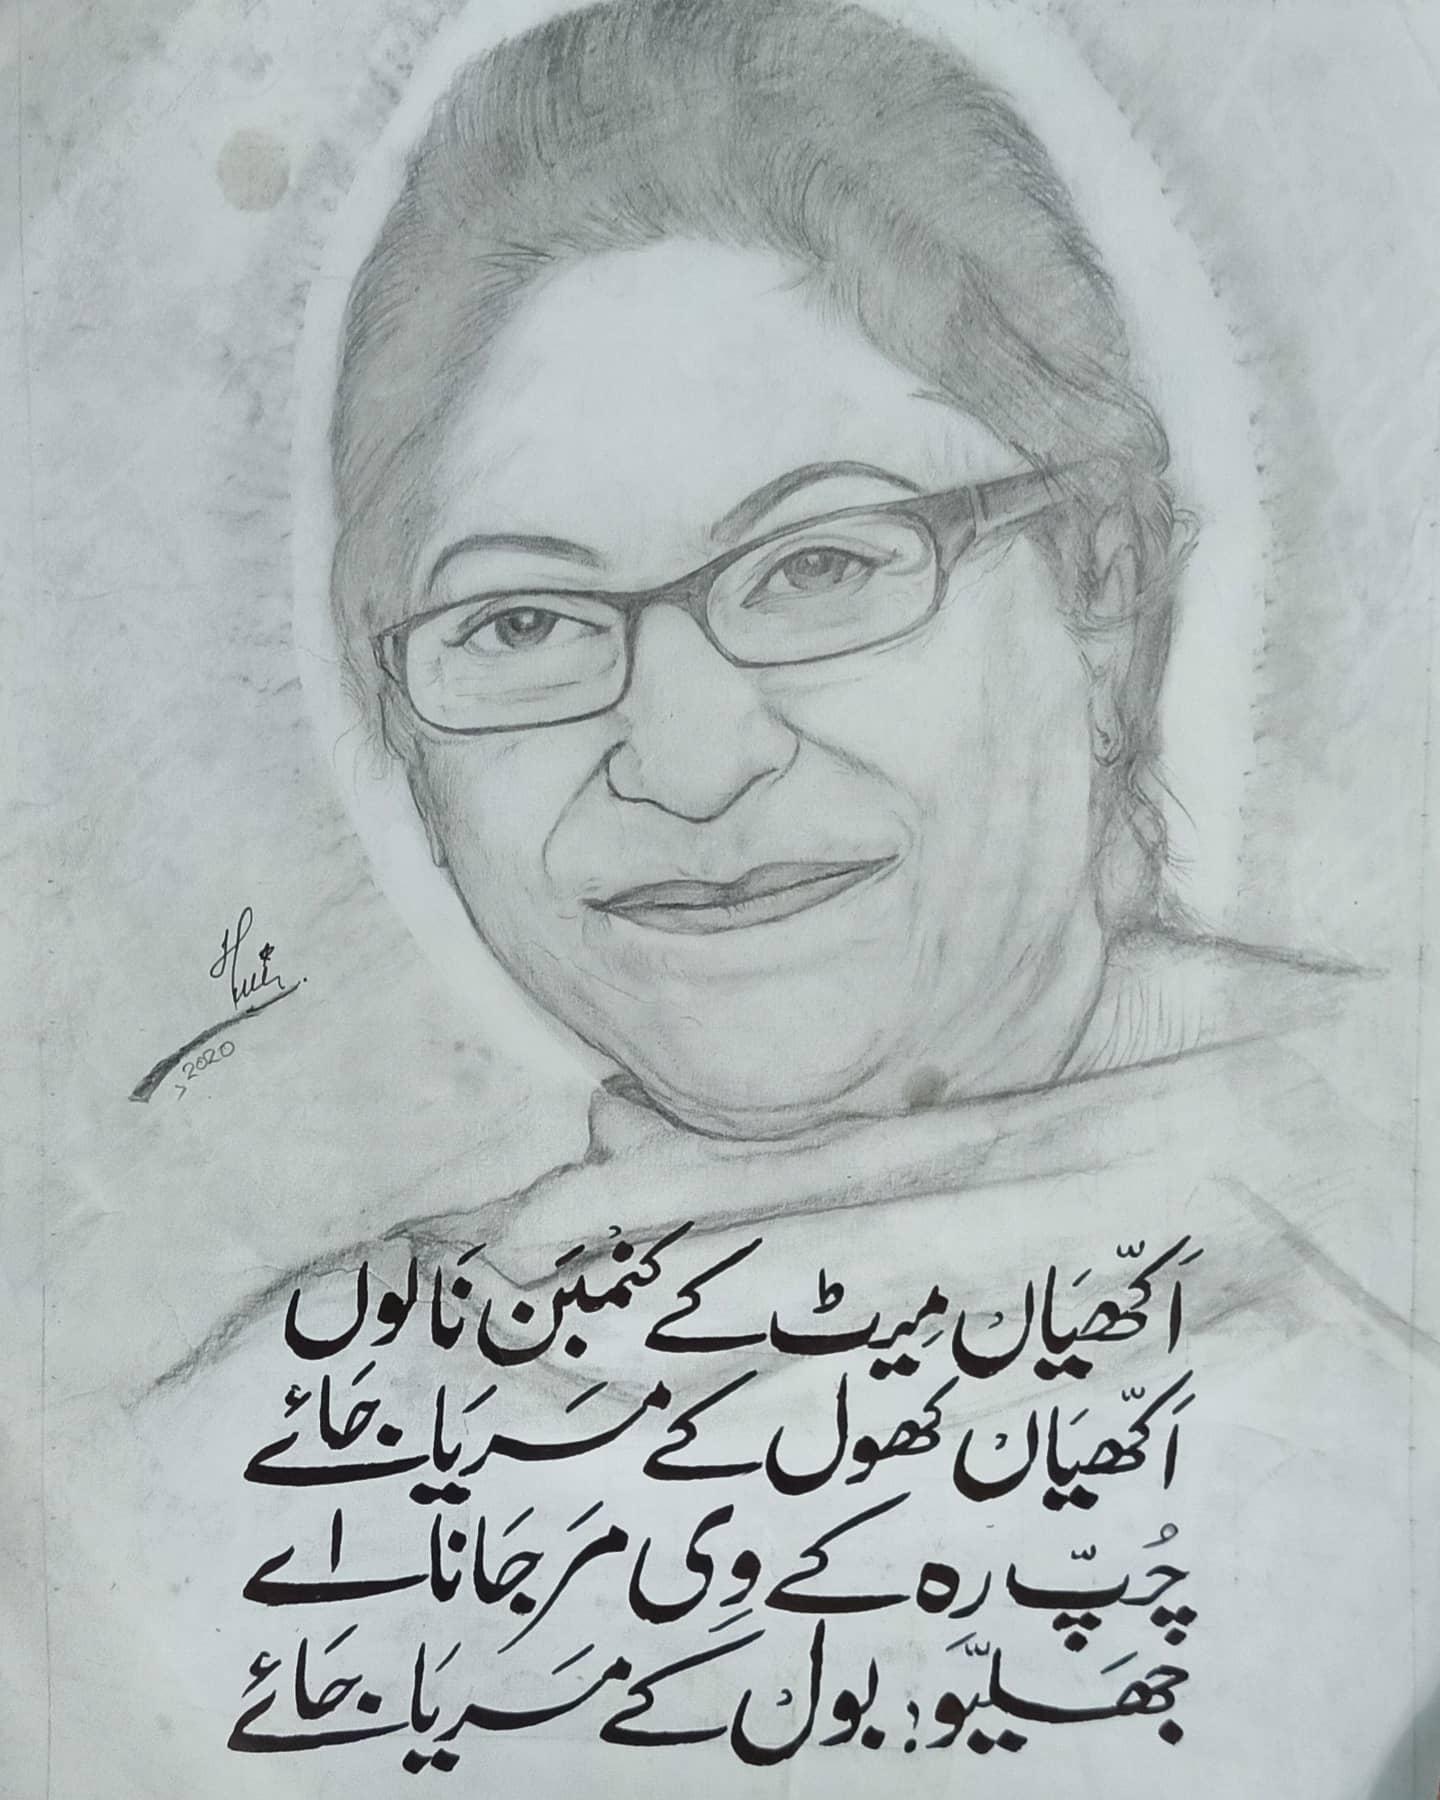 اَکھّیَاں مِیٹ کے کَنْمبَن نَالوں
اَکھّیَاں کھول کے مَریَا جَائے
چُپّ رہ کے وِی مَر جَانا اے
جھَلیّو! بول کے مَریَا جَائے
2020